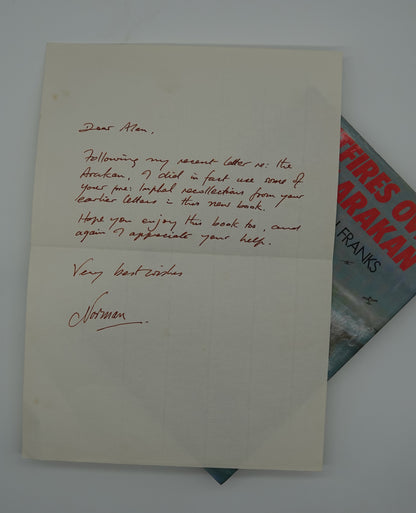 Dear Alan,
Following my recent letter re: the
Arakan, I did in fact use some of
your pre: Imphal recollections from your
earlier letters in this new book.
Hope you enjoy this book too, and
again I appreciate your help.
Very best wishes
Norman.
TFIRES OV
ARAKAN
FRANKS